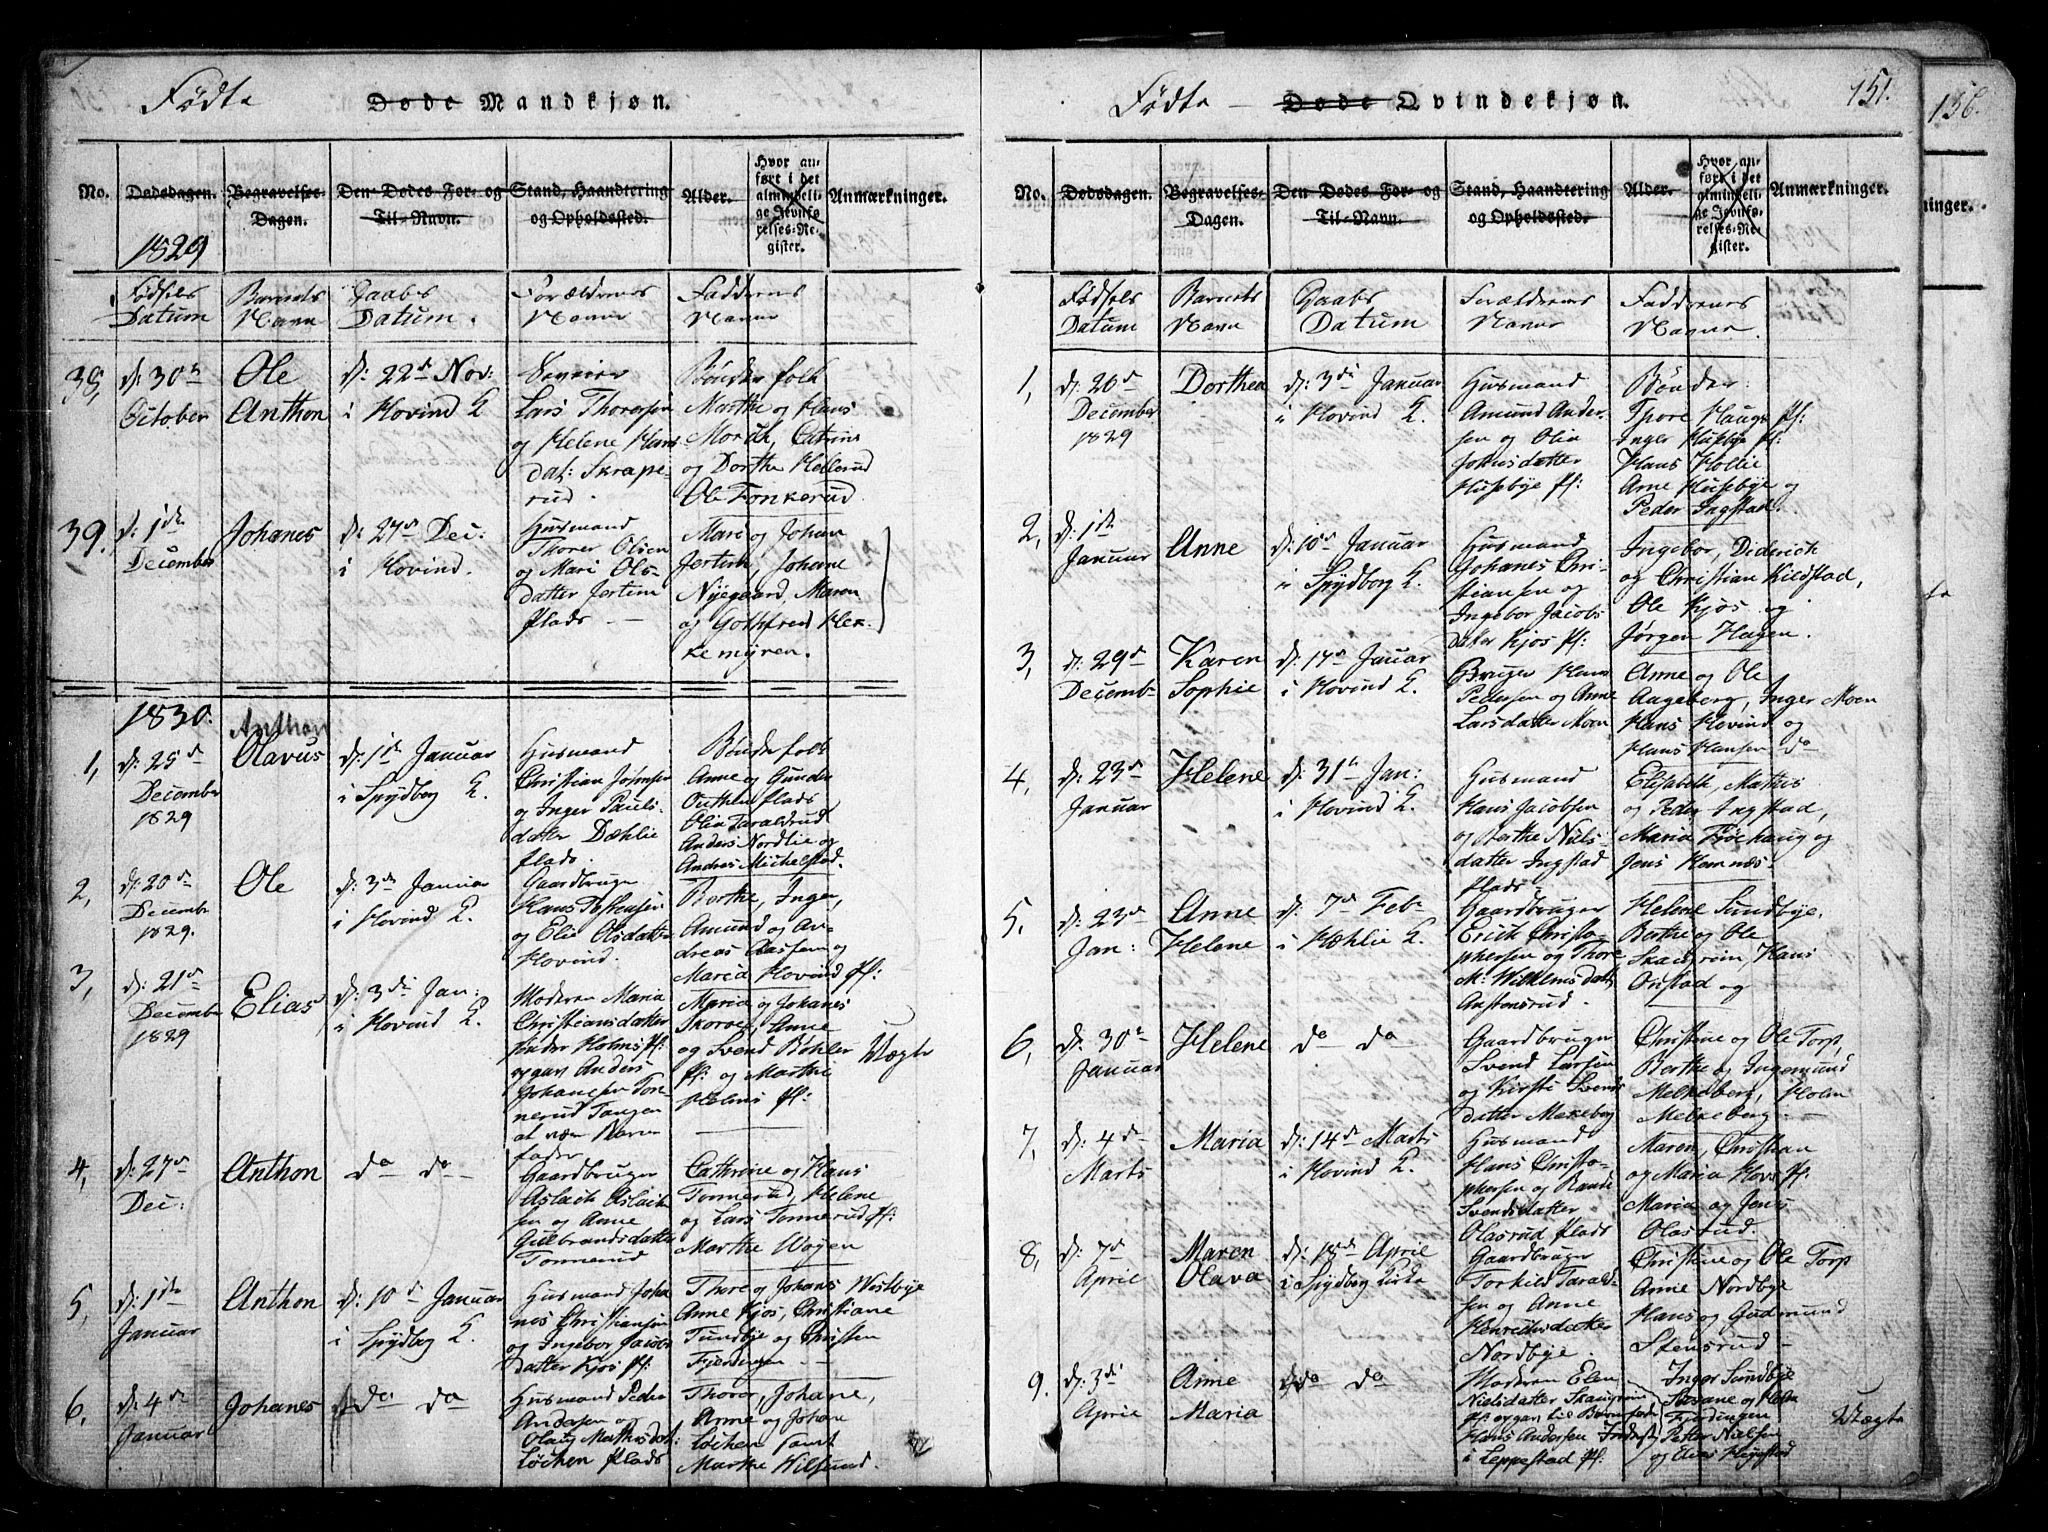 Födte Døde Mandkjøn.
No. Dødsdagen. Begravelses-Dagen. Den Dødes For- og Til-Navn. Stand, Haandtering og Opholdssted. Alder. Hvor anført i det almindelige Jevnførelses-Register. Anmærkninger.
1829
Fødsels Datum
Barnets Navn
Daabs Datum.
Forældrenes Navne
Faddernes Navne
39,
d: 30
October
Ole
Anthon
d: 22d Nov:
i Hovind K
Lars Thoresen
og Helene Hans
dat: Skrape-
rud.
Bönder folk
Marthe og Hans
Catrine
og Dorthe Hellerud
Ole Fonkerud.
39.
d: 1de
December
Johanes
d: 27d Dec:
i Hovind.
Husmand
Thorer Olsen
og Mari Ols-
datter Jertim
plads
Mari og Johan
Jertim, Johane
Nyegaard, Maren
og Gothfred Hek-
kemyren.
1830.
1,
d: 25d
December
1829
Anthon
Olavus
d: 1de Januar
i Spydbog K.
Husmand
Christian Johnsen
og Inger Pauls-
datter Dæhlie
plads.
Bönder folk
Anne og Gunder
plads
Olia Taraldrud
Anders Nordlie og
Andreas Michelstad.
2,
d: 20de
Decembr
1829.
Ole
d: 3de Januar
i Hovind K.
Gaardbruger
Hans Torstensen
og Elie Olsdatter
Hovind.
Berthe, Inger,
Amund og An-
dreas Clausen og
Maria Hovind pl:
3,
d: 21de
Decembr
1829
Elias
d: 3de Jan:
i Hovind K.
Moderen Maria
Christiansdatter
Holms pl:
opgav Anders
Johansen Ton-
nerud Tangen
at være Barne
fader
Maria og Johanes
Skorve, Anne
og Svend Böhler
pl: og Marthe
Holms pl:
Uægte
4,
d: 27de
Dec:
Anthon
do do
Gaardbruger
Aslach Aslach-
sen og Anne
Gulbrandsdatter
Tonnerud
Cathrine og Hans
Tonnerud, Helene
og Lars Tonnerud pl:
Marthe Wojen
5,
d: 1de
Januar
Anthon
d: 10d Januar
i Spydbog K.
Husmand Joha
nes Christiansen
og Ingebor Jacobs
datter Kjos pl:
Thore og Johans Westbye
Anne Kjos, Christiane
Sundbye og Christen
Fjerdingen
6,
d: 4de
Januar
Johanes
do do
Husmand Peder
Andersen og
Olaug Mathisdat:
Löchen plads
Thorer, Johane,
Anne og Johan
Löchen samt
Marthe Wilsund.
Födte Døde Qvindekjøn. 151.
No. Dødsdagen. Begravelses-Dagen. Den Dødes For- og Til-Navn. Stand, Haandtering og Opholdssted. Alder. Hvor anført i det almindelige Jevnførelses-Register. Anmærkninger.
Fødsels Datum
Barnets Navn
Daabs Datum
Forældrenes Navne
Faddernes Navne.
1,
d: 26d
December
1829
Dorthea
d: 3de Januar
i Hovind K.
Husmand
Amund Ander-
sen og Olia
Johnsdatter
Husebye pl:
Bönder:
Tpore Hauger pl:
Inger Husebye pl:
Hans Hollie
Arne Husebye og
Peder Ingstad.
2,
d: 1de
Januar
Anne
d: 10d Januar
i Spydborg K.
Husmand
Johanes Chri-
stiansen og
Ingebor Jacobs
datter Kjos pl:
Ingebor, Diderich
og Christian Kildstad,
Ole Kjos og
Jørgen Hagen.
3,
d: 29d
Decemb-
Karen
Sophie
d: 17d Januar
i Hovind K.
Bruger Hans
Pedersen og Anne
Larsdatter Moen
Anne og Ole
Aageberg, Inger Moen
Hans Hovind og
Hans Hansen do
4,
d: 23d
Januar
Helene
d: 31te Jan:
i Hovind K.
Husmand
Hans Jacobsen
og Berthe Niels-
datter Ingstad
plads
Elisbeth, Mathis
og Peder Ingstad,
Maria Fröehaug og
Jens Hamnæs.
5,
d: 23d
Jan:
Anne
Helene
d: 7d Feb-
i Hæhlie K.
Gaardbruger
Erich Christo-
phersen og Thore
M: Wilhelmsdatt
Anstensrud.
Helene Sundbye,
Berthe og Ole
Skamröin, Hans
Onstad og
6,
d: 30te
Januar
Helene
do do
Gaardbruger
Svend Larsen
og Kirsti Svends
datter Mekeberg
Christine og Ole Torp,
Berthe og Ingemund
Melneberg, Holm
Mekeberg.
7,
d: 4de
Marts
Maria
d: 14de Marts
i Hovind K.
Husmand
Hans Christo-
phersen og Randi
Svendsdatter
Olasrud plads
Maren, Christian
og Maria Hovs pl:
Maria og Jens
Olasrud.
8,
d: 7d
April
Maren
Olava
d: 18de April
i Spydbog Kirke
Gaardbruger
Torkild Tarald-
sen og Anne
Henrichsdatter
Nordbye.
Christine og Ole Torp
Anne Nordbye
Hans og Gudmund
Stensrud
9.
d: 3de
April
Anne
Maria
do do
Moderen Elen
Nielsdatter
pl: opgav til Barnefader
Hans Andersen
i Leppestad pl:
Inger Sundbye
Susane og Helene
Fjerdingen
Petter Nielsen
og Elias Hogstad
Uægte
156.
ninger.